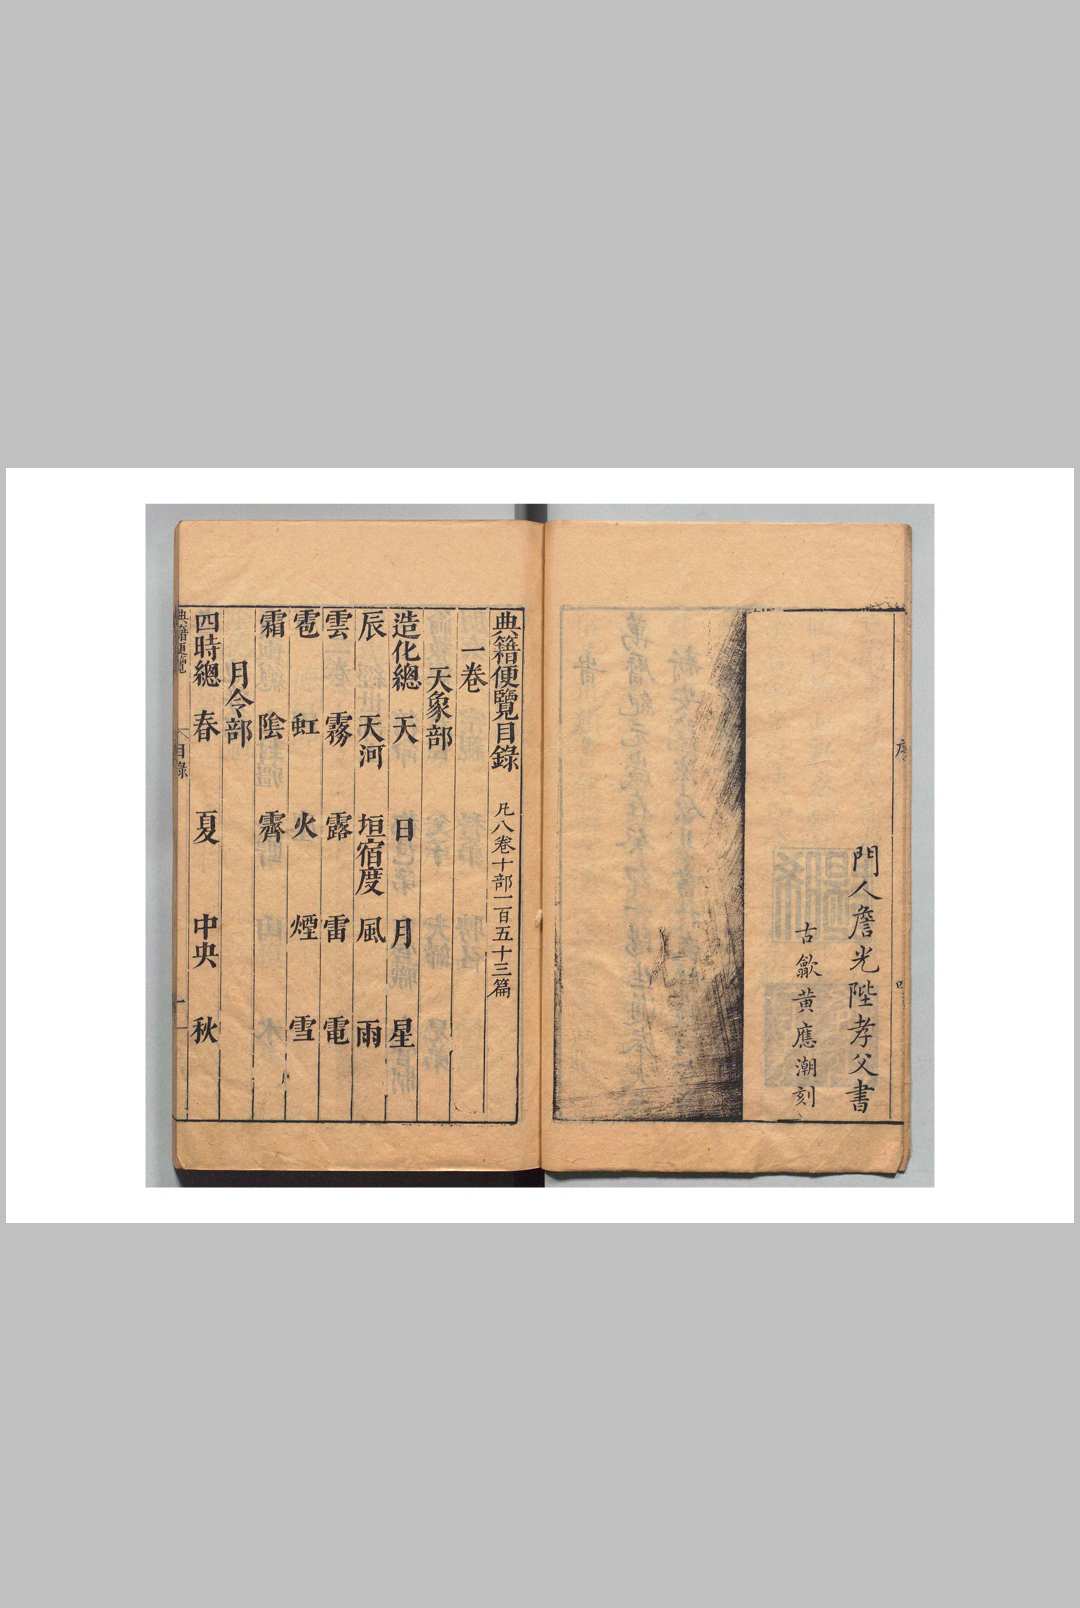 門人詹光陛孝父書
古歙黃應潮刻
典籍便覽目錄 凡八卷十部一百五十三篇
一卷
天象部
造化總 天 日 月 星
辰 天河 垣宿度 風 雨
雲 霧 露 雷 電
雹 虹 火 煙 雪
霜 陰 霽
月令部
四時總 春 夏 中央 秋
典籍便覽 目錄 一